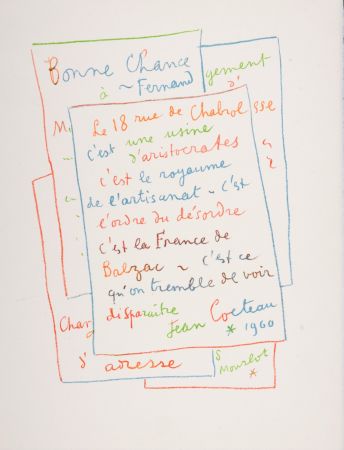 Bonne Chance
à ~ Fernand
gement
d'
M
Le 18 rue de Chabrol
sse
c'est une usine
d'aristocrates
c'est le royaume
de l'artisanat ~ c'est
l'ordre du désordre
c'est la France de
Balzac ~ c'est ce
qu'on tremble de voir
disparaître
Chan
Jean Cocteau
* 1960
d' adresse
s
Mourlot
*